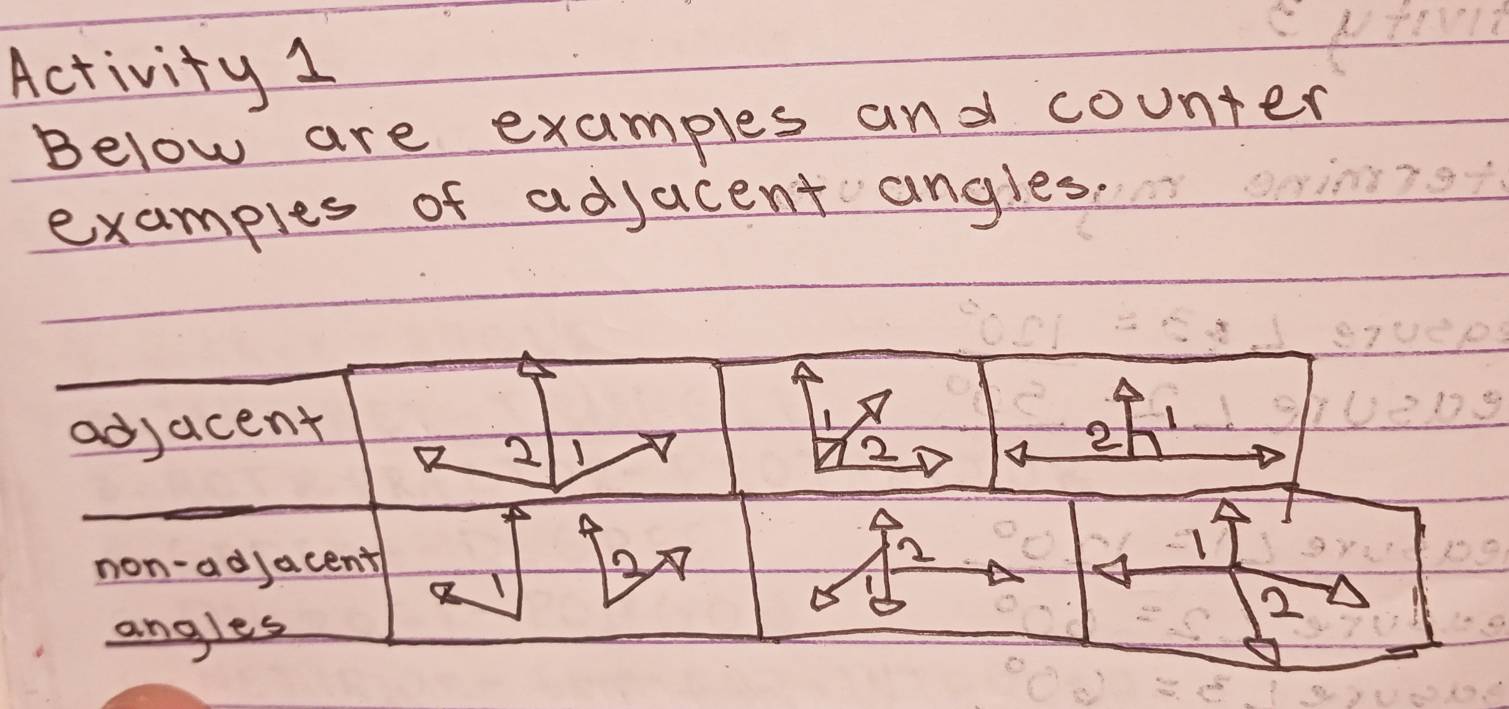 Activity 1
Below are examples and counter
examples of adjacent angles.
adjacent
2 1
1 2
2 1
non-adjacent
angles
1 2
2
1
1
2